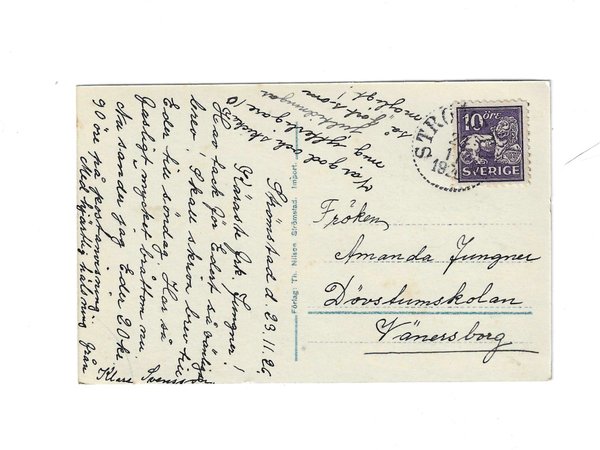 Strömstad d. 23.11.26.
Käraste Frk. Jungner!
Hav tack för Edert så vänliga
brev! Skall skriva brev till
Eder till söndag. Har så
gasligt mycket bråttom nu
Nu sänder jag Eder 20 kr
90 öre på postanvisning.
Med hjärtlig hälsning från
Klara Svensson
Var god och skicka
mig ytterligare 10
så fort som
möjligt!
Förlag: Th. Nilson Strömstad. Import.
STRÖ
10 ÖRE
SVERIGE
Fröken
Amanda Jungner
Dövstumskolan
Vänersborg